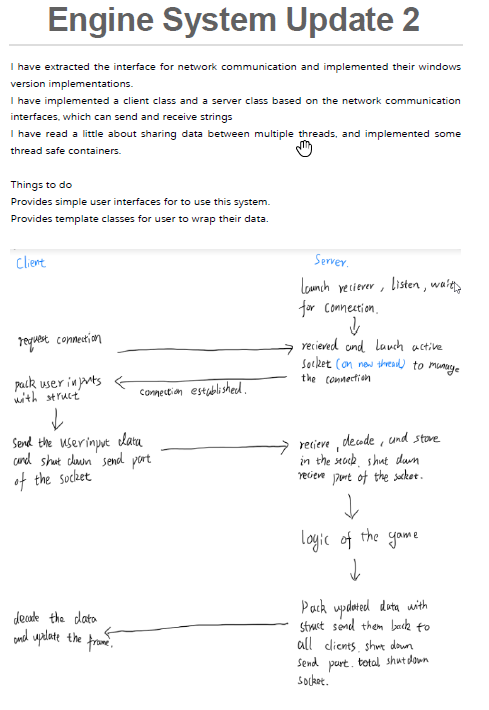 Engine System Update 2
I have extracted the interface for network communication and implemented their windows
version implementations.
I have implemented a client class and a server class based on the network communication
interfaces, which can send and receive strings
I have read a little about sharing data between multiple threads, and implemented some
thread safe containers.
Things to do
Provides simple user interfaces for to use this system.
Provides template classes for user to wrap their data.
Client
Server.
Launch reciever, listen, wait
for connection.
request connection
recieved and Lauch active
socket (on new thread) to manage
the connection
connection established.
pack user inputs
with struct
Send the userinput data
and shut down send port
of the socket
recieve, decode, and store
in the stack. shut down
recieve port of the socket.
logic of the game
Pack updated data with
struct send them back to
all clients, shut down
send port. total shutdown
socket.
decode the data
and update the frame.